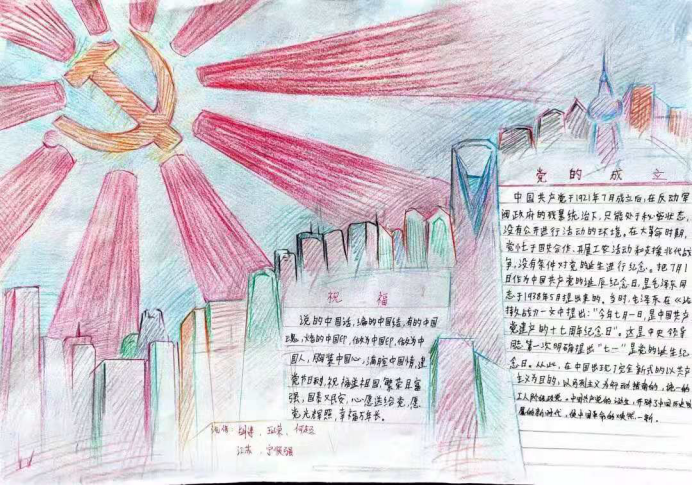 党的成立
中国共产党于1921年7月成立后,在反动军
阀政府的残暴统治下,只能处于秘密状态,
没有公开进行活动的环境。在大革命时期,
党忙于国共合作、开展工农活动和支援北伐战
争,没有条件对党的诞生进行纪念。把7月1
日作为中国共产党的诞辰纪念日,是毛泽东同
志于1938年5月提出来的。当时,毛泽东在《论
持久战》一文中提出:"今年七月一日,是中国共产
党建立的十七周年纪念日"。这是中央领导
同志第一次明确提出"七一"是党的诞生纪
念日。从此,在中国出现了完全新式的以共产
主义为目的,以马列主义为行动指南的,统一的
工人阶级政党。中国共产党的诞生,开辟了中国历史发
展的新时代,使中国革命的焕然一新。
祝福
说的中国话,编的中国结,有的中国
魂,烙的中国印,做为中国
人,胸装中国心,满腔中国情,建
党节日到,祝福咱祖国,繁荣且富
强,国泰又民安,心愿送给党,愿
党光辉照,幸福万年长。
江苏、宁顺强